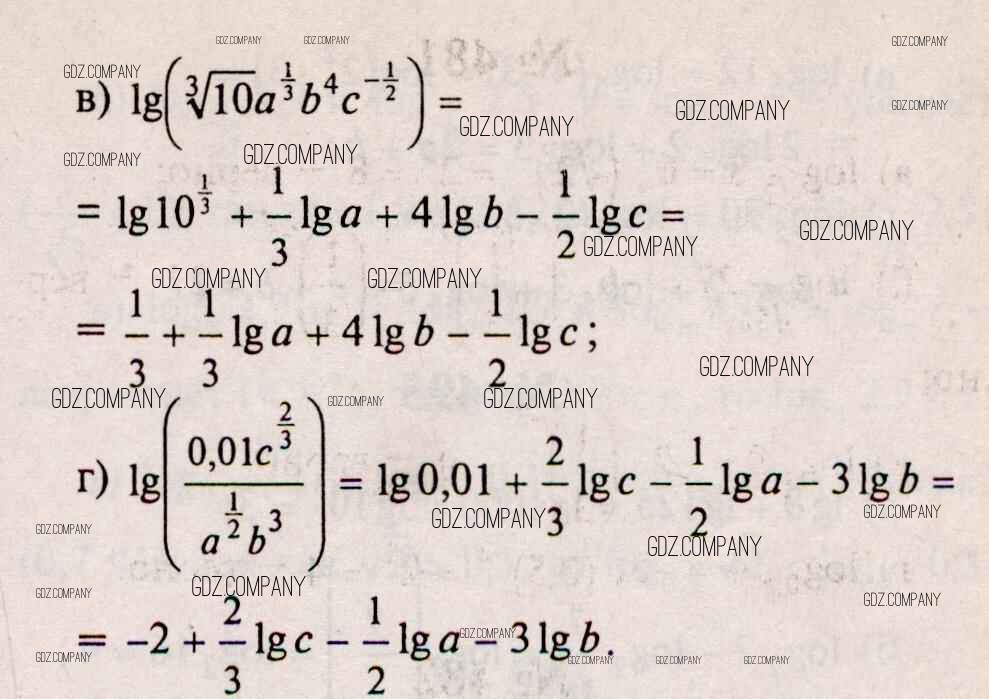 GDZ.COMPANY GDZ.COMPANY GDZ.COMPANY
GDZ.COMPANY
в) lg(∛10 a^(1/3) b^4 c^(-1/2)) =
GDZ.COMPANY GDZ.COMPANY GDZ.COMPANY
GDZ.COMPANY GDZ.COMPANY
= lg 10^(1/3) + 1/3 lg a + 4 lg b − 1/2 lg c =
GDZ.COMPANY GDZ.COMPANY
GDZ.COMPANY GDZ.COMPANY
= 1/3 + 1/3 lg a + 4 lg b − 1/2 lg c ;
GDZ.COMPANY
GDZ.COMPANY GDZ.COMPANY GDZ.COMPANY
г) lg(0,01c^(2/3) / a^(1/2) b^3) = lg 0,01 + 2/3 lg c − 1/2 lg a − 3 lg b =
GDZ.COMPANY GDZ.COMPANY GDZ.COMPANY
GDZ.COMPANY
GDZ.COMPANY GDZ.COMPANY GDZ.COMPANY
= −2 + 2/3 lg c − 1/2 lg a − 3 lg b.
GDZ.COMPANY
GDZ.COMPANY GDZ.COMPANY GDZ.COMPANY GDZ.COMPANY